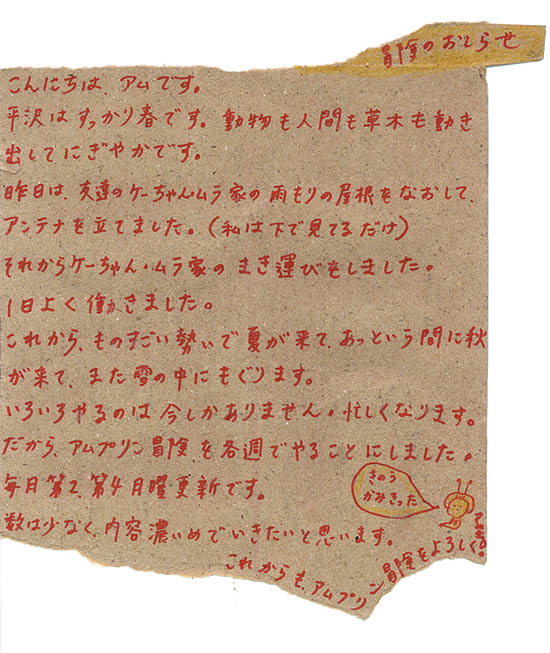 冒険のおしらせ
こんにちは、アムです。
平沢はすっかり春です。動物も人間も草木も動き
出してにぎやかです。
昨日は、友達のケーちゃん・ムラ家の雨もりの屋根をなおして、
アンテナを立てました。(私は下で見てるだけ)
それからケーちゃん・ムラ家のまき運びをしました。
1日よく働きました。
これから、ものすごい勢いで夏が来て、あっという間に秋
が来て、また雪の中にもぐります。
いろいろやるのは今しかありません。忙しくなります。
だから、アムプリン冒険を各週でやることにしました。
毎月第2、第4月曜更新です。
数は少なく、内容濃いめでいきたいと思います。
これからも、アムプリン冒険をよろしく。
きのう
かみきった